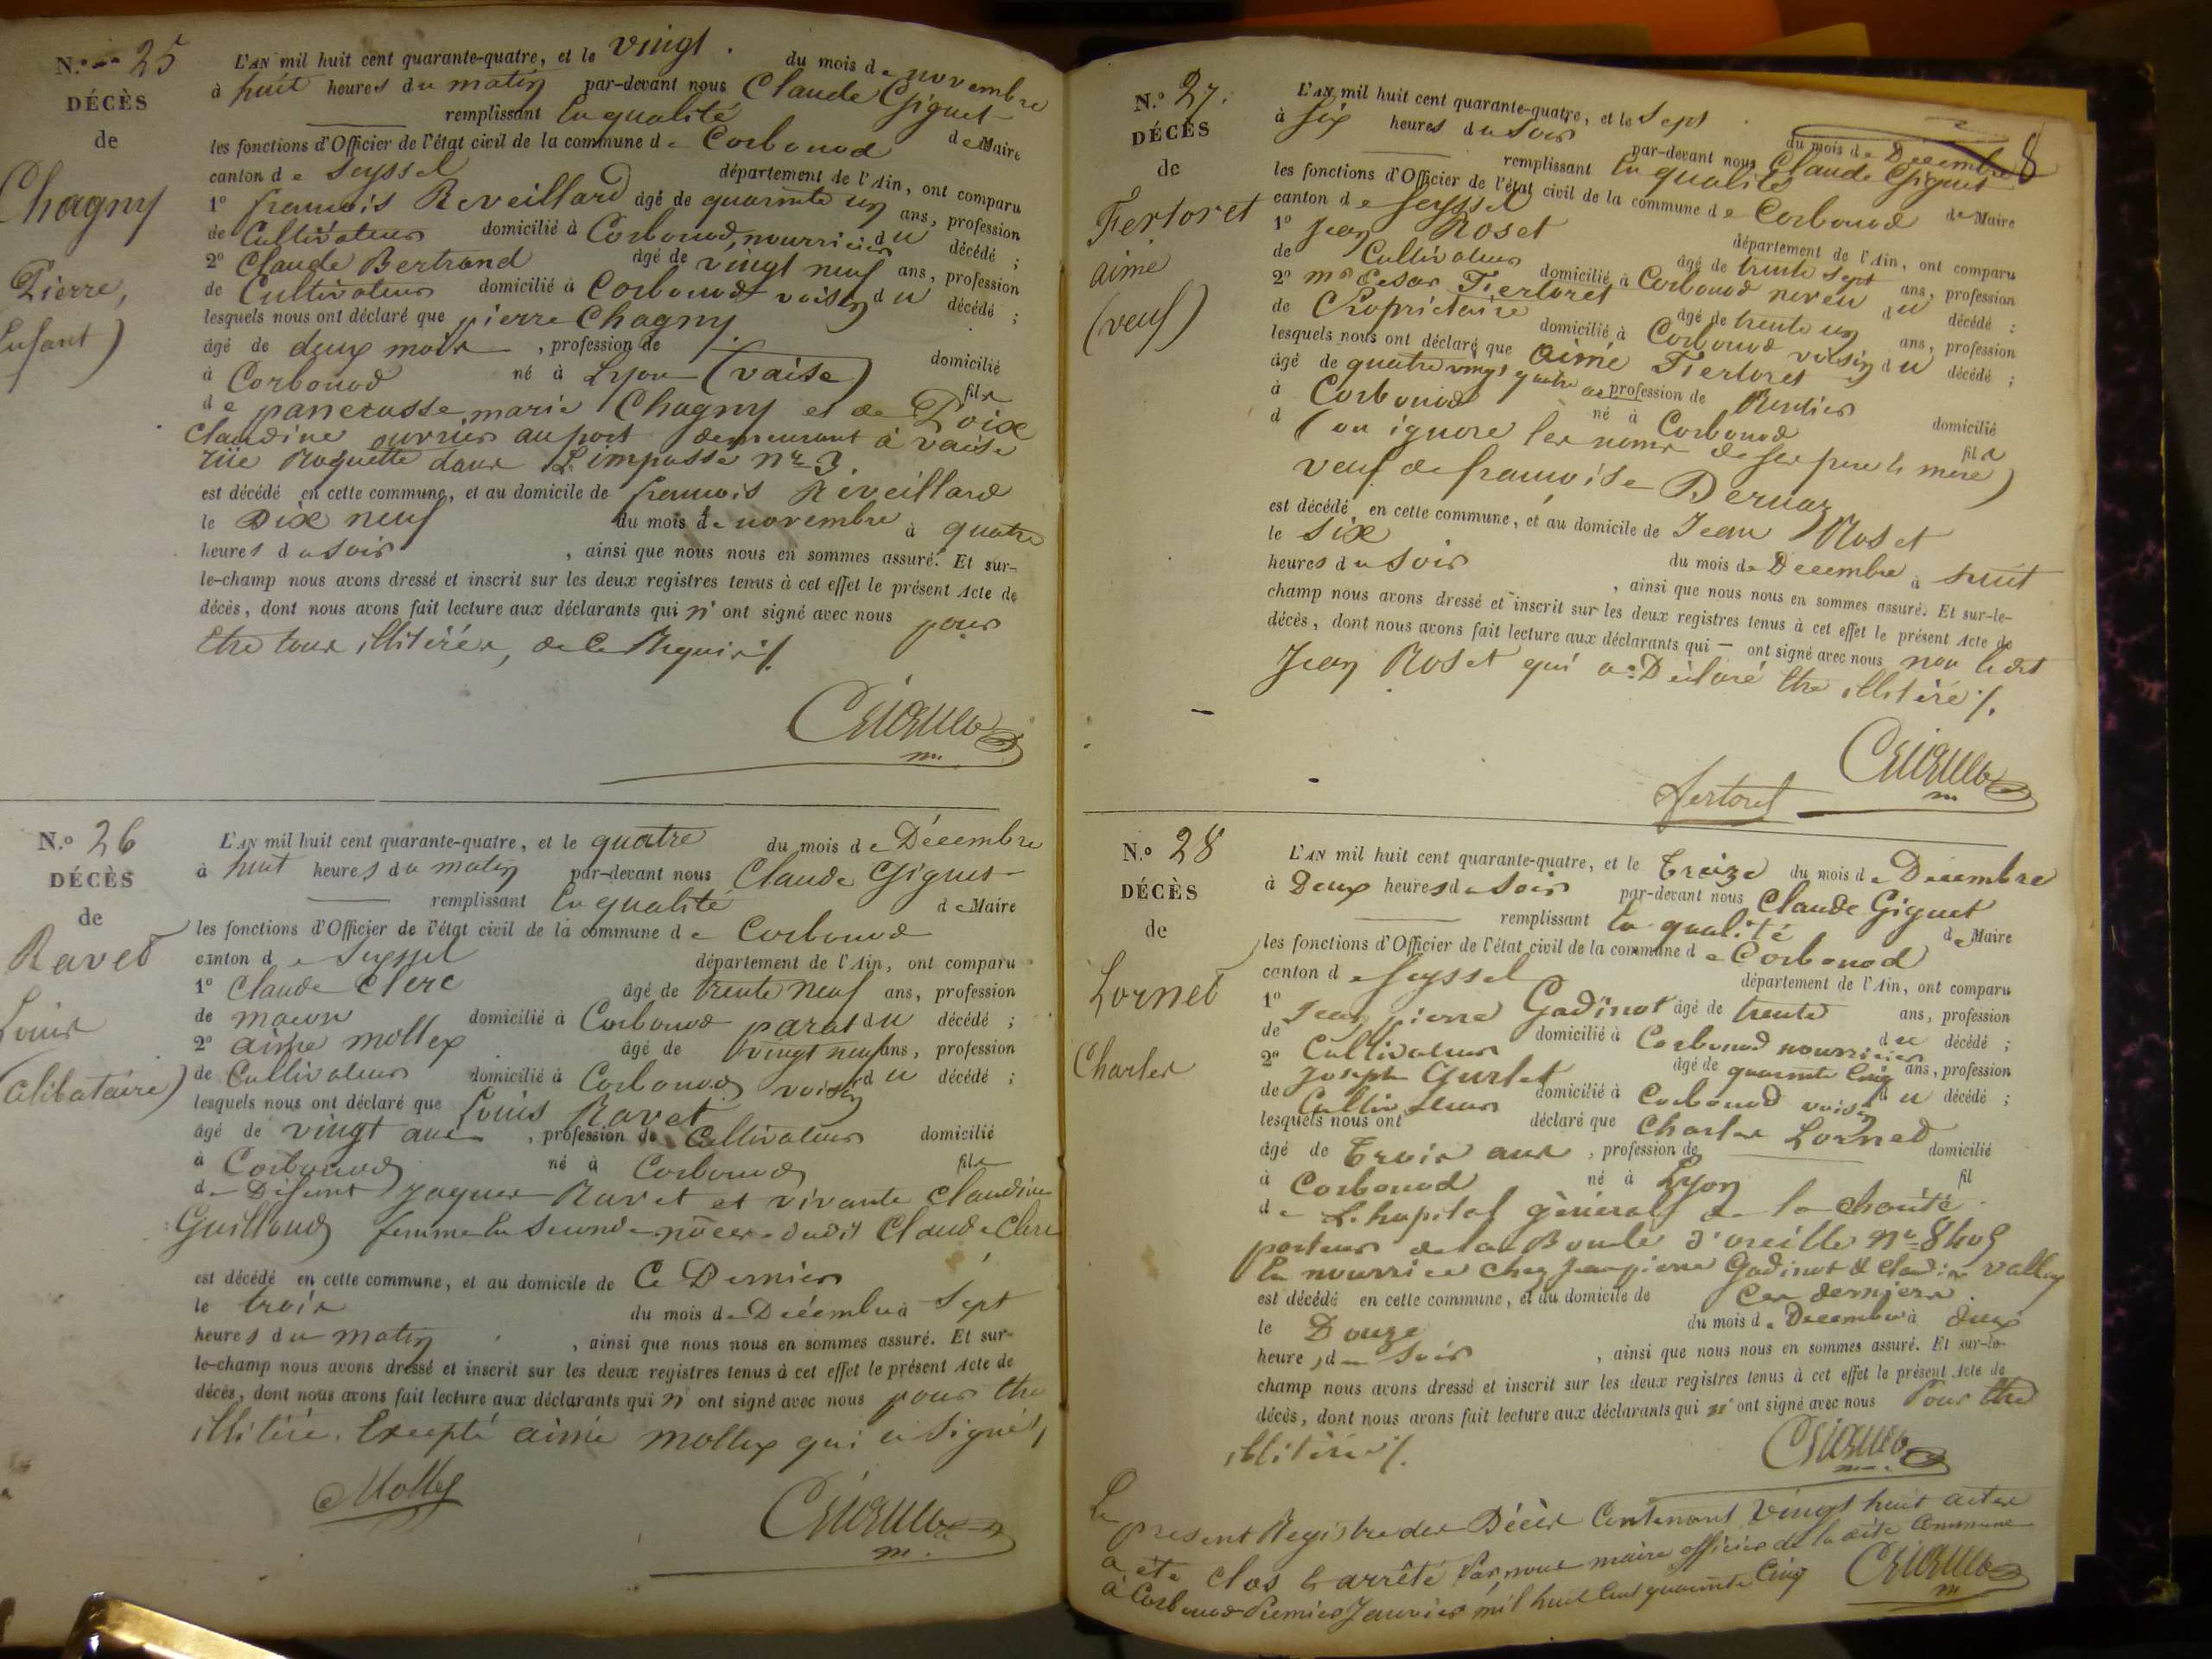 N.o 25
DÉCÈS
de
Chagny
Pierre,
Enfant)
L'AN mil huit cent quarante-quatre, et le vingt du mois de novembre
à huit heures du matin par-devant nous Claude Giguet
remplissant la qualité de Maire
les fonctions d'Officier de l'état civil de la commune de Corbonod
canton de Seyssel département de l'Ain, ont comparu
1o francois Reveillard âgé de quarante un ans, profession
de Cultivateur domicilié à Corbonod, nourricier du décédé ;
2o Claude Bertrand âgé de vingt neuf ans, profession
de Cultivateur domicilié à Corbonod voisin du décédé ;
lesquels nous ont déclaré que pierre Chagny
âgé de deux mois , profession de domicilié
à Corbonod né à Lyon (vaise) fils
de pancrasse marie Chagny et de Poix
Claudine ouvrier au port demeurant à vaise
rüe Roquette dans L'impasse nr 3.
est décédé en cette commune, et au domicile de francois Reveillard
le Dix neuf du mois de novembre à quatre
heures du soir , ainsi que nous nous en sommes assuré. Et sur-
le-champ nous avons dressé et inscrit sur les deux registres tenus à cet effet le présent Acte de
décès, dont nous avons fait lecture aux déclarants qui n' ont signé avec nous pour
être tous illitérés, de ce Requis /.
N.o 26
DÉCÈS
de
Ravet
Louis
(célibataire)
L'AN mil huit cent quarante-quatre, et le quatre du mois de Décembre
à huit heures du matin par-devant nous Claude Giguet
remplissant la qualité de Maire
les fonctions d'Officier de l'état civil de la commune de Corbonod
canton de Seyssel département de l'Ain, ont comparu
1o Claude Clerc âgé de trente neuf ans, profession
de macon domicilié à Corbonod parat du décédé ;
2o aimé mollex âgé de vingt neuf ans, profession
de Cultivateur domicilié à Corbonod voisin du décédé ;
lesquels nous ont déclaré que Louis Ravet
âgé de vingt ans , profession de Cultivateur domicilié
à Corbonod né à Corbonod fils
de Défunt Jaques Ravet et vivante Claudine
Guilloud femme en seconde nôces dudit Claude Clerc
est décédé en cette commune, et au domicile de Ce Dernier
le trois du mois de Décembre à sept
heures du matin , ainsi que nous nous en sommes assuré. Et sur-
le-champ nous avons dressé et inscrit sur les deux registres tenus à cet effet le présent Acte de
décès, dont nous avons fait lecture aux déclarants qui n' ont signé avec nous pour être
illitéré, Excepté aimé mollex qui a signé /
Mollex
8
N.o 27.
DÉCÈS
de
Fertoret
aimé
(veuf)
L'AN mil huit cent quarante-quatre, et le sept du mois de Décembre
à six heures du soir par-devant nous Claude Giguet
remplissant la qualité de Maire
les fonctions d'Officier de l'état civil de la commune de Corbonod
canton de Seyssel département de l'Ain, ont comparu
1o Jean Roset âgé de trente sept ans, profession
de Cultivateur domicilié à Corbonod neveu du décédé ;
2o mr César Fiertoret âgé de trente un ans, profession
de Propriétaire domicilié à Corbonod voisin du décédé ;
lesquels nous ont déclaré que aimé Fiertoret
âgé de quatre vingt quatre ans profession de Rentier domicilié
à Corbonod né à Corbonod fils
d (on ignore les noms de ses pere & mere)
veuf de francoise Bernaz
est décédé en cette commune, et au domicile de Jean Roset
le six du mois de Décembre à huit
heures du soir , ainsi que nous nous en sommes assuré. Et sur-le-
champ nous avons dressé et inscrit sur les deux registres tenus à cet effet le présent Acte de
décès, dont nous avons fait lecture aux déclarants qui — ont signé avec nous non ledit
Jean Roset qui a Déclaré être illitéré /.
fertoret
N.o 28
DÉCÈS
de
Lornet
Charles
L'AN mil huit cent quarante-quatre, et le Treize du mois de Décembre
à Deux heures du soir par-devant nous Claude Giguet
remplissant la qualité de Maire
les fonctions d'Officier de l'état civil de la commune de Corbonod
canton de Seyssel département de l'Ain, ont comparu
1o Jean pierre Gadinot âgé de trente ans, profession
de Cultivateur domicilié à Corbonod nourricier du décédé ;
2o Joseph Gurlet âgé de quarante cinq ans, profession
de Cultivateur domicilié à Corbonod voisin du décédé ;
lesquels nous ont déclaré que Charles Lornet
âgé de Trois ans , profession de domicilié
à Corbonod né à Lyon fil
de L'hopital général de la charité
porteur de la Boucle d'oreille no 8409
en nourrice chez Jean pierre Gadinot & Claudine vallex
est décédé en cette commune, et au domicile de Ces derniers
le Douze du mois de Décembre à deux
heures du soir , ainsi que nous nous en sommes assuré. Et sur-le-
champ nous avons dressé et inscrit sur les deux registres tenus à cet effet le présent Acte de
décès, dont nous avons fait lecture aux déclarants qui n' ont signé avec nous Pour être
illitérés /.
Le present Registre des Décès Contenant Vingt huit actes
a été clos & arrêté Par nous maire officier de la dite Commune
à Corbonod Premier Janvier mil huit cent quarante Cinq